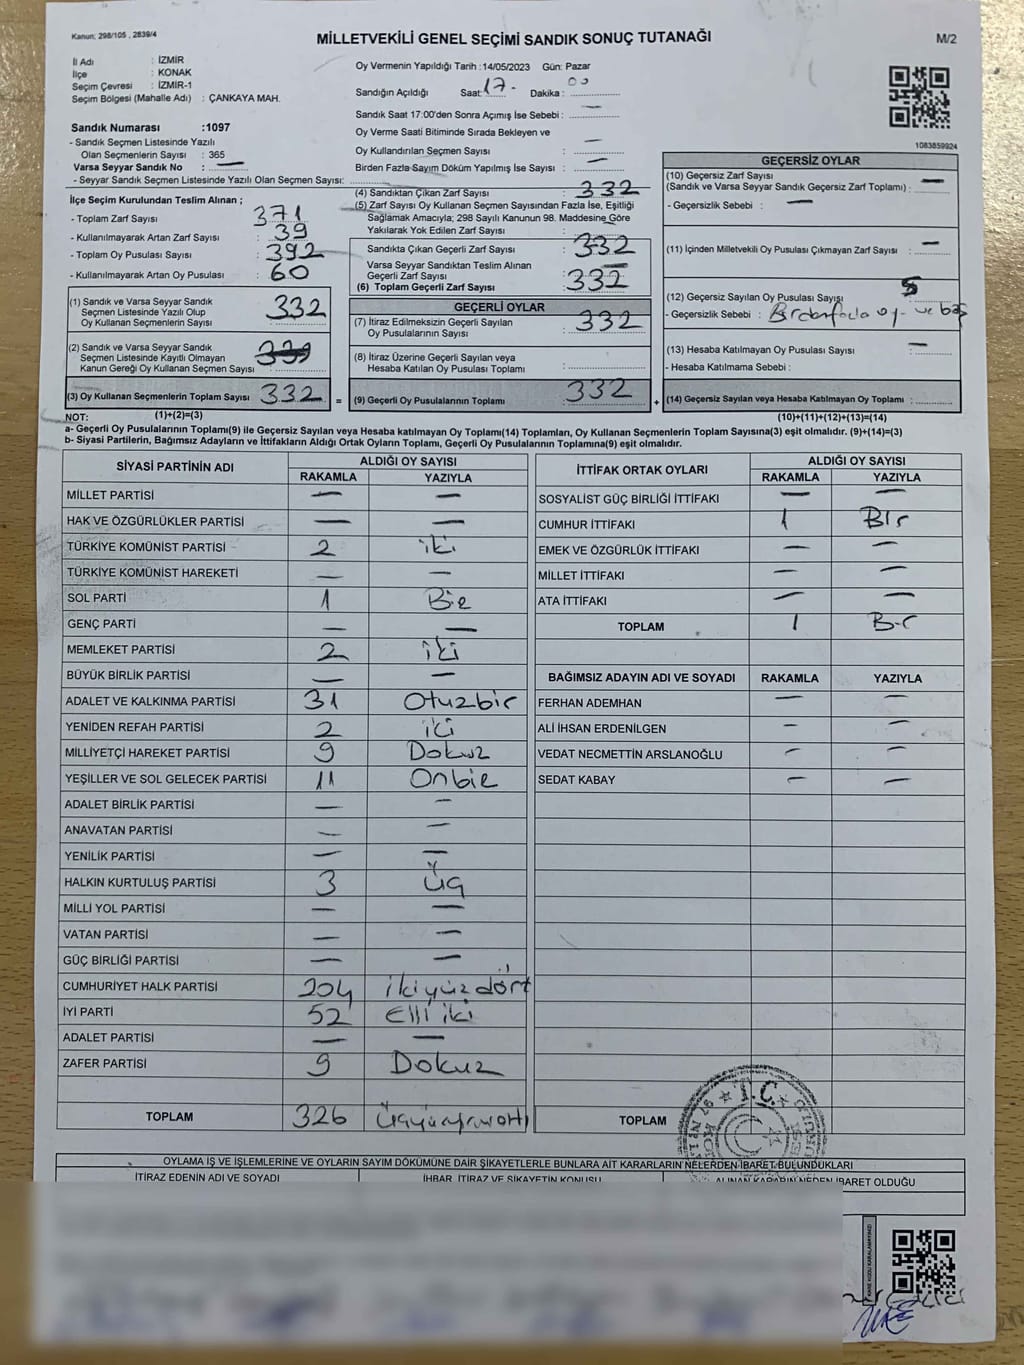 Kanun: 298/105 , 2839/4
MİLLETVEKİLİ GENEL SEÇİMİ SANDIK SONUÇ TUTANAĞI
M/2
İl Adı : İZMİR
İlçe : KONAK
Seçim Çevresi : İZMİR-1
Seçim Bölgesi (Mahalle Adı) : ÇANKAYA MAH.
Oy Vermenin Yapıldığı Tarih : 14/05/2023 Gün: Pazar
Sandığın Açıldığı Saat: 17- Dakika : 00
Sandık Saat 17:00'den Sonra Açımış İse Sebebi : —
Oy Verme Saati Bitiminde Sırada Bekleyen ve
Oy Kullandırılan Seçmen Sayısı : —
Birden Fazla Sayım Döküm Yapılmış İse Sayısı : —
1083859924
Sandık Numarası :1097
- Sandık Seçmen Listesinde Yazılı
Olan Seçmenlerin Sayısı : 365
Varsa Seyyar Sandık No : —
- Seyyar Sandık Seçmen Listesinde Yazılı Olan Seçmen Sayısı:
İlçe Seçim Kurulundan Teslim Alınan ;
- Toplam Zarf Sayısı : 371
- Kullanılmayarak Artan Zarf Sayısı : 39
- Toplam Oy Pusulası Sayısı : 392
- Kullanılmayarak Artan Oy Pusulası : 60
(1) Sandık ve Varsa Seyyar Sandık
Seçmen Listesinde Yazılı Olup
Oy Kullanan Seçmenlerin Sayısı : 332
(2) Sandık ve Varsa Seyyar Sandık
Seçmen Listesinde Kayıtlı Olmayan
Kanun Gereği Oy Kullanan Seçmen Sayısı :
(3) Oy Kullanan Seçmenlerin Toplam Sayısı : 332 =
(4) Sandıktan Çıkan Zarf Sayısı : 332
(5) Zarf Sayısı Oy Kullanan Seçmen Sayısından Fazla İse, Eşitliği
Sağlamak Amacıyla; 298 Sayılı Kanunun 98. Maddesine Göre
Yakılarak Yok Edilen Zarf Sayısı : —
Sandıkta Çıkan Geçerli Zarf Sayısı : 332
Varsa Seyyar Sandıktan Teslim Alınan
Geçerli Zarf Sayısı : —
(6) Toplam Geçerli Zarf Sayısı : 332
GEÇERLİ OYLAR
(7) İtiraz Edilmeksizin Geçerli Sayılan
Oy Pusulalarının Sayısı : 332
(8) İtiraz Üzerine Geçerli Sayılan veya
Hesaba Katılan Oy Pusulası Toplamı :
(9) Geçerli Oy Pusulalarının Toplamı : 332 +
GEÇERSİZ OYLAR
(10) Geçersiz Zarf Sayısı
(Sandık ve Varsa Seyyar Sandık Geçersiz Zarf Toplamı) : —
- Geçersizlik Sebebi : —
(11) İçinden Milletvekili Oy Pusulası Çıkmayan Zarf Sayısı : —
(12) Geçersiz Sayılan Oy Pusulası Sayısı : 5
- Geçersizlik Sebebi : Birdenfazla oy - ve boş
(13) Hesaba Katılmayan Oy Pusulası Sayısı : —
- Hesaba Katılmama Sebebi :
(14) Geçersiz Sayılan veya Hesaba Katılmayan Oy Toplamı :
NOT: (1)+(2)=(3) (10)+(11)+(12)+(13)=(14)
a- Geçerli Oy Pusulalarının Toplamı(9) ile Geçersiz Sayılan veya Hesaba katılmayan Oy Toplamı(14) Toplamları, Oy Kullanan Seçmenlerin Toplam Sayısına(3) eşit olmalıdır. (9)+(14)=(3)
b- Siyasi Partilerin, Bağımsız Adayların ve İttifakların Aldığı Ortak Oyların Toplamı, Geçerli Oy Pusulalarının Toplamına(9) eşit olmalıdır.
SİYASİ PARTİNİN ADI ALDIĞI OY SAYISI
RAKAMLA YAZIYLA
MİLLET PARTİSİ — —
HAK VE ÖZGÜRLÜKLER PARTİSİ — —
TÜRKİYE KOMÜNİST PARTİSİ 2 iki
TÜRKİYE KOMÜNİST HAREKETİ — —
SOL PARTİ 1 Bir
GENÇ PARTİ — —
MEMLEKET PARTİSİ 2 iki
BÜYÜK BİRLİK PARTİSİ — —
ADALET VE KALKINMA PARTİSİ 31 Otuzbir
YENİDEN REFAH PARTİSİ 2 iki
MİLLİYETÇİ HAREKET PARTİSİ 9 Dokuz
YEŞİLLER VE SOL GELECEK PARTİSİ 11 Onbir
ADALET BİRLİK PARTİSİ — —
ANAVATAN PARTİSİ — —
YENİLİK PARTİSİ — —
HALKIN KURTULUŞ PARTİSİ 3 üç
MİLLİ YOL PARTİSİ — —
VATAN PARTİSİ — —
GÜÇ BİRLİĞİ PARTİSİ — —
CUMHURİYET HALK PARTİSİ 204 ikiyüzdört
İYİ PARTİ 52 Elli iki
ADALET PARTİSİ — —
ZAFER PARTİSİ 9 Dokuz
TOPLAM 326 üçyüzyirmialtı
İTTİFAK ORTAK OYLARI ALDIĞI OY SAYISI
RAKAMLA YAZIYLA
SOSYALİST GÜÇ BİRLİĞİ İTTİFAKI — —
CUMHUR İTTİFAKI 1 BIr
EMEK VE ÖZGÜRLÜK İTTİFAKI — —
MİLLET İTTİFAKI — —
ATA İTTİFAKI — —
TOPLAM 1 Bir
BAĞIMSIZ ADAYIN ADI VE SOYADI RAKAMLA YAZIYLA
FERHAN ADEMHAN — —
ALİ İHSAN ERDENİLGEN — —
VEDAT NECMETTİN ARSLANOĞLU — —
SEDAT KABAY — —
TOPLAM
T.C.
OYLAMA İŞ VE İŞLEMLERİNE VE OYLARIN SAYIM DÖKÜMÜNE DAİR ŞİKAYETLERLE BUNLARA AİT KARARLARIN NELERDEN İBARET BULUNDUKLARI
İTİRAZ EDENİN ADI VE SOYADI İHBAR, İTİRAZ VE ŞİKAYETİN KONUSU ALINAN KARARIN NEDEN İBARET OLDUĞU
KARE KODU KARALAMAYINIZ!